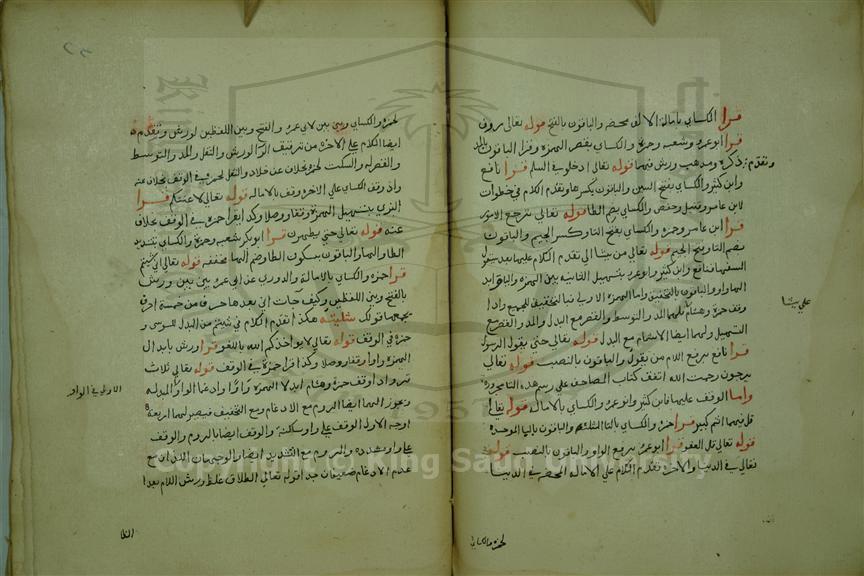 قرا الكساي بامالة الالف محضه والباقون بالفتح قوله تعالى روف
قرا ابو عمرو وشعبه وحمزة والكساي بقصر الهمزة وقرا الباقون بالمد
وتقدم ذكره ومذهب ورش فيها قوله تعالى ادخلوا في السلم قرا نافع
وابن كثير والكساي بفتح السين والباقون بكسرها وتقدم الكلام في خطوات
لابن عامر وقنبل وحفص والكساي بضم الطا قوله تعالى ترجع الامور
قرا ابن عامر وحمزه والكساي بفتح التا وكسر الجيم والباقون
بضم التا وفتح الجيم قوله تعالى من يشا الى تقدم الكلام عليها عند سيقول
السفها فنافع وابن كثير وابو عمرو بتسهيل الثانية بين الهمزة والياء وابدالها
واوا والباقون بالتحقيق واما الهمزة الاولى فبالتحقيق للجميع واذا
وقف حمزة وهشام فلهما المد والتوسط والقصر مع البدل والمد والقصر مع
التسهيل ولهما ايضا الاشمام مع البدل قوله تعالى حتى يقول الرسول
قرا نافع برفع اللام من يقول والباقون بالنصب قوله تعالى
يرجون رحمت الله اتفقت كتاب المصاحف على رسم هذه التا مجرورة
واما الوقف عليها فابن كثير وابو عمرو والكساي بالاماله قوله تعالى
قل فيهما اثم كبير قرا حمزه والكساي بالثا المثلثه والباقون بالبا الموحده
قوله تعالى قل العفو قرا ابو عمرو برفع الواو والباقون بالنصب قوله
تعالى في الدنيا والاخرة تقدم الكلام على الاماله المحضه في الدنيا
على يشا
لحمزه والكساي
لحمزه والكساي وبين بين لابي عمرو والفتح وبين اللفظين لورش وتقدم
ايضا الكلام على الاخرة من ترقيق الرا لورش والنقل والمد والتوسط
والقصر له والسكت لحمزه بخلاف عن خلاد والنقل لحمزه في الوقف بخلاف عنه
واذ وقف الكساي على الاخرة وقف بالاماله قوله تعالى لاعنتكم قرا
البزي بتسهيل الهمزة وقفا ووصلا وكذا يقرا حمزة في الوقف بخلاف
عنه قوله تعالى حتى يطهرن قرا ابو بكر شعبه وحمزة والكساي بتشديد
الطا والها والباقون بسكون الطا وضم الها مخففه قوله تعالى انى شئتم
قرا حمزه والكساي بالامالة والدوري عن ابي عمرو بين بين وورش
بالفتح وبين اللفظين وكيف جات انى بعدها حرف من خمسة احرف
يجمعها قولك شليته هكذا تقدم الكلام في شئتم من البدل للسوسي و
حمزة في الوقف قوله تعالى لا يواخذكم الله باللغو قرا ورش بابدال
الهمزة واوا وقفا ووصلا وكذا قرا حمزة في الوقف قوله تعالى ثلاث
قرو اذا وقف حمزة وهشام ابدلا الهمزة واوا وادغما الواو المبدله
ويجوز لهما ايضا الروم مع الادغام ومع التخفيف فيصير لهما اربعة
اوجه الاول الوقف على واو ساكنة والوقف ايضا بالروم والوقف
على واو مشدده والروم مع التشديد ايضا والوجهان اللذان مع
عدم الادغام ضعيفان جدا قوله تعالى الطلاق غلظ ورش اللام بعد
الاولى في الواو
الطا
Copyright © King Saud University
1957